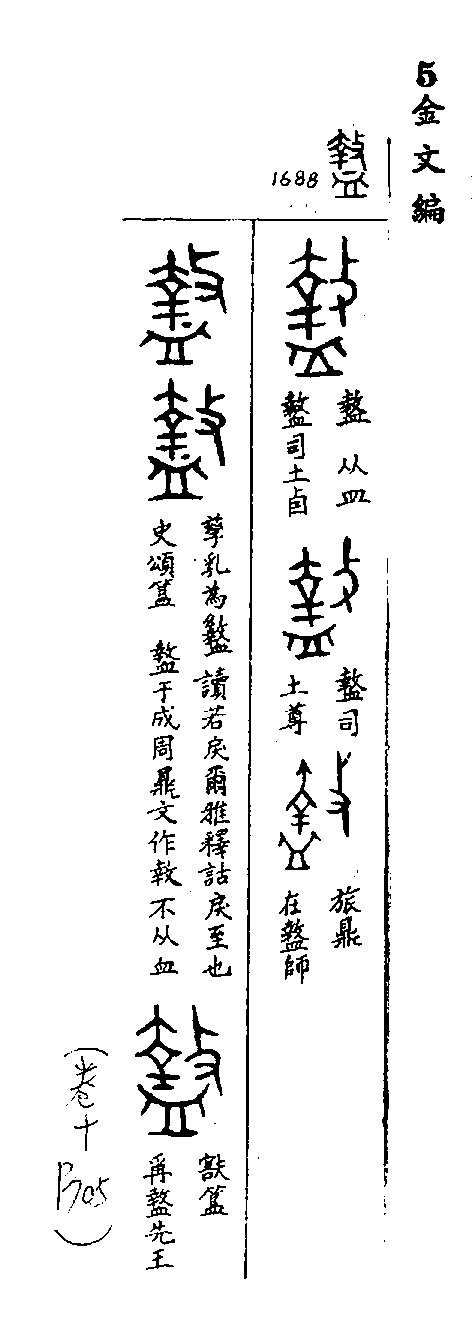 5金文編
1688
盩 从皿
盩司土卣
盩司
土尊
旅鼎
在盩師
孳乳為盭讀若戾爾雅釋詁戾至也
史頌簋 盩于成周鼎文作敹不从皿
㝬簋
再盩先王
(卷十
P705)